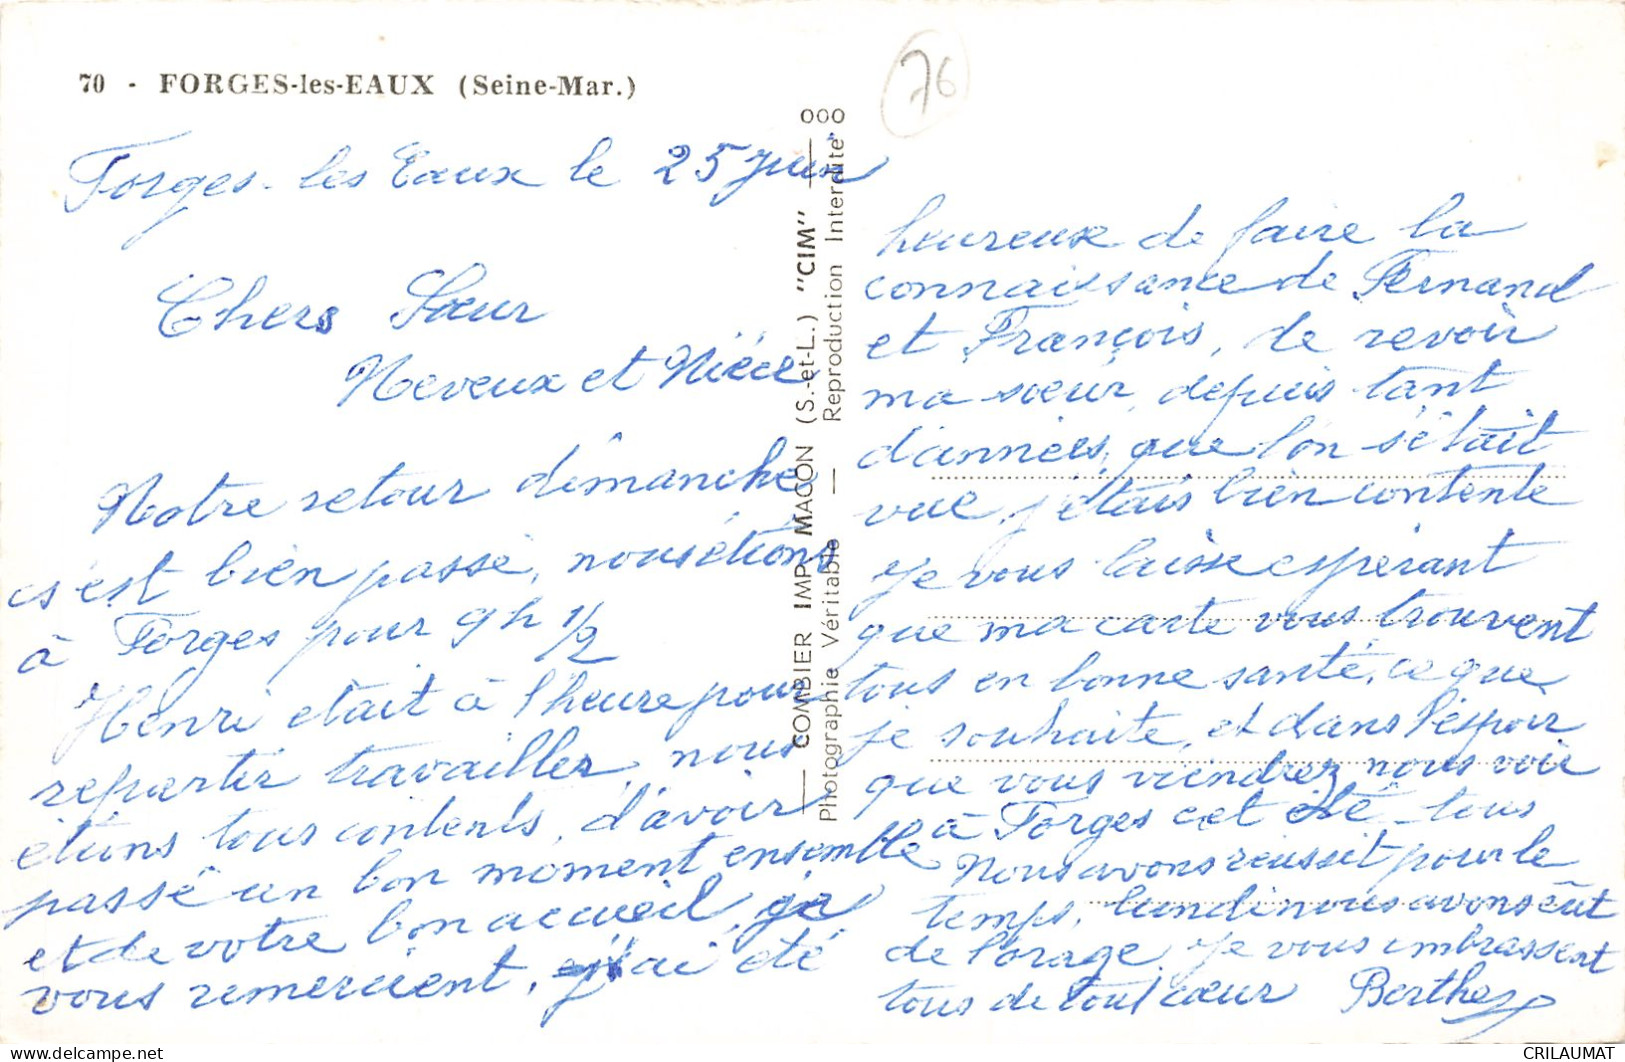 70 - FORGES-les-EAUX (Seine-Mar.)
76
Forges-les Eaux le 25 Juin
Chers Sœur
Neveux et Nièce
Notre retour dimanche
s'est bien passé, nous étions
à Forges pour 9h 1/2
Henri etait à l'heure pour
repartir travailler, nous
étions tous contents, d'avoir
passé un bon moment ensemble
et de votre bon accueil, je
vous remercient, j'ai été
COMBIER IMP. MACON (S.-et-L.) "CIM"
Photographie Véritable — Reproduction Interdite
heureuse de faire la
connaissance de Fernand
et François, de revoir
ma sœur, depuis tant
d'années, que l'on s'était
vue, j'étais bien contente
je vous laisse espérant
que ma carte vous trouvent
tous en bonne santé, ce que
je souhaite, et dans l'espoir
que vous viendrez nous voir
à Forges cet été tous
Nous avons réussit pour le
temps, lundi nous avons eût
de l'orage, je vous embrassent
tous de tout cœur Berthe
CRILAUMAT
© delcampe.net